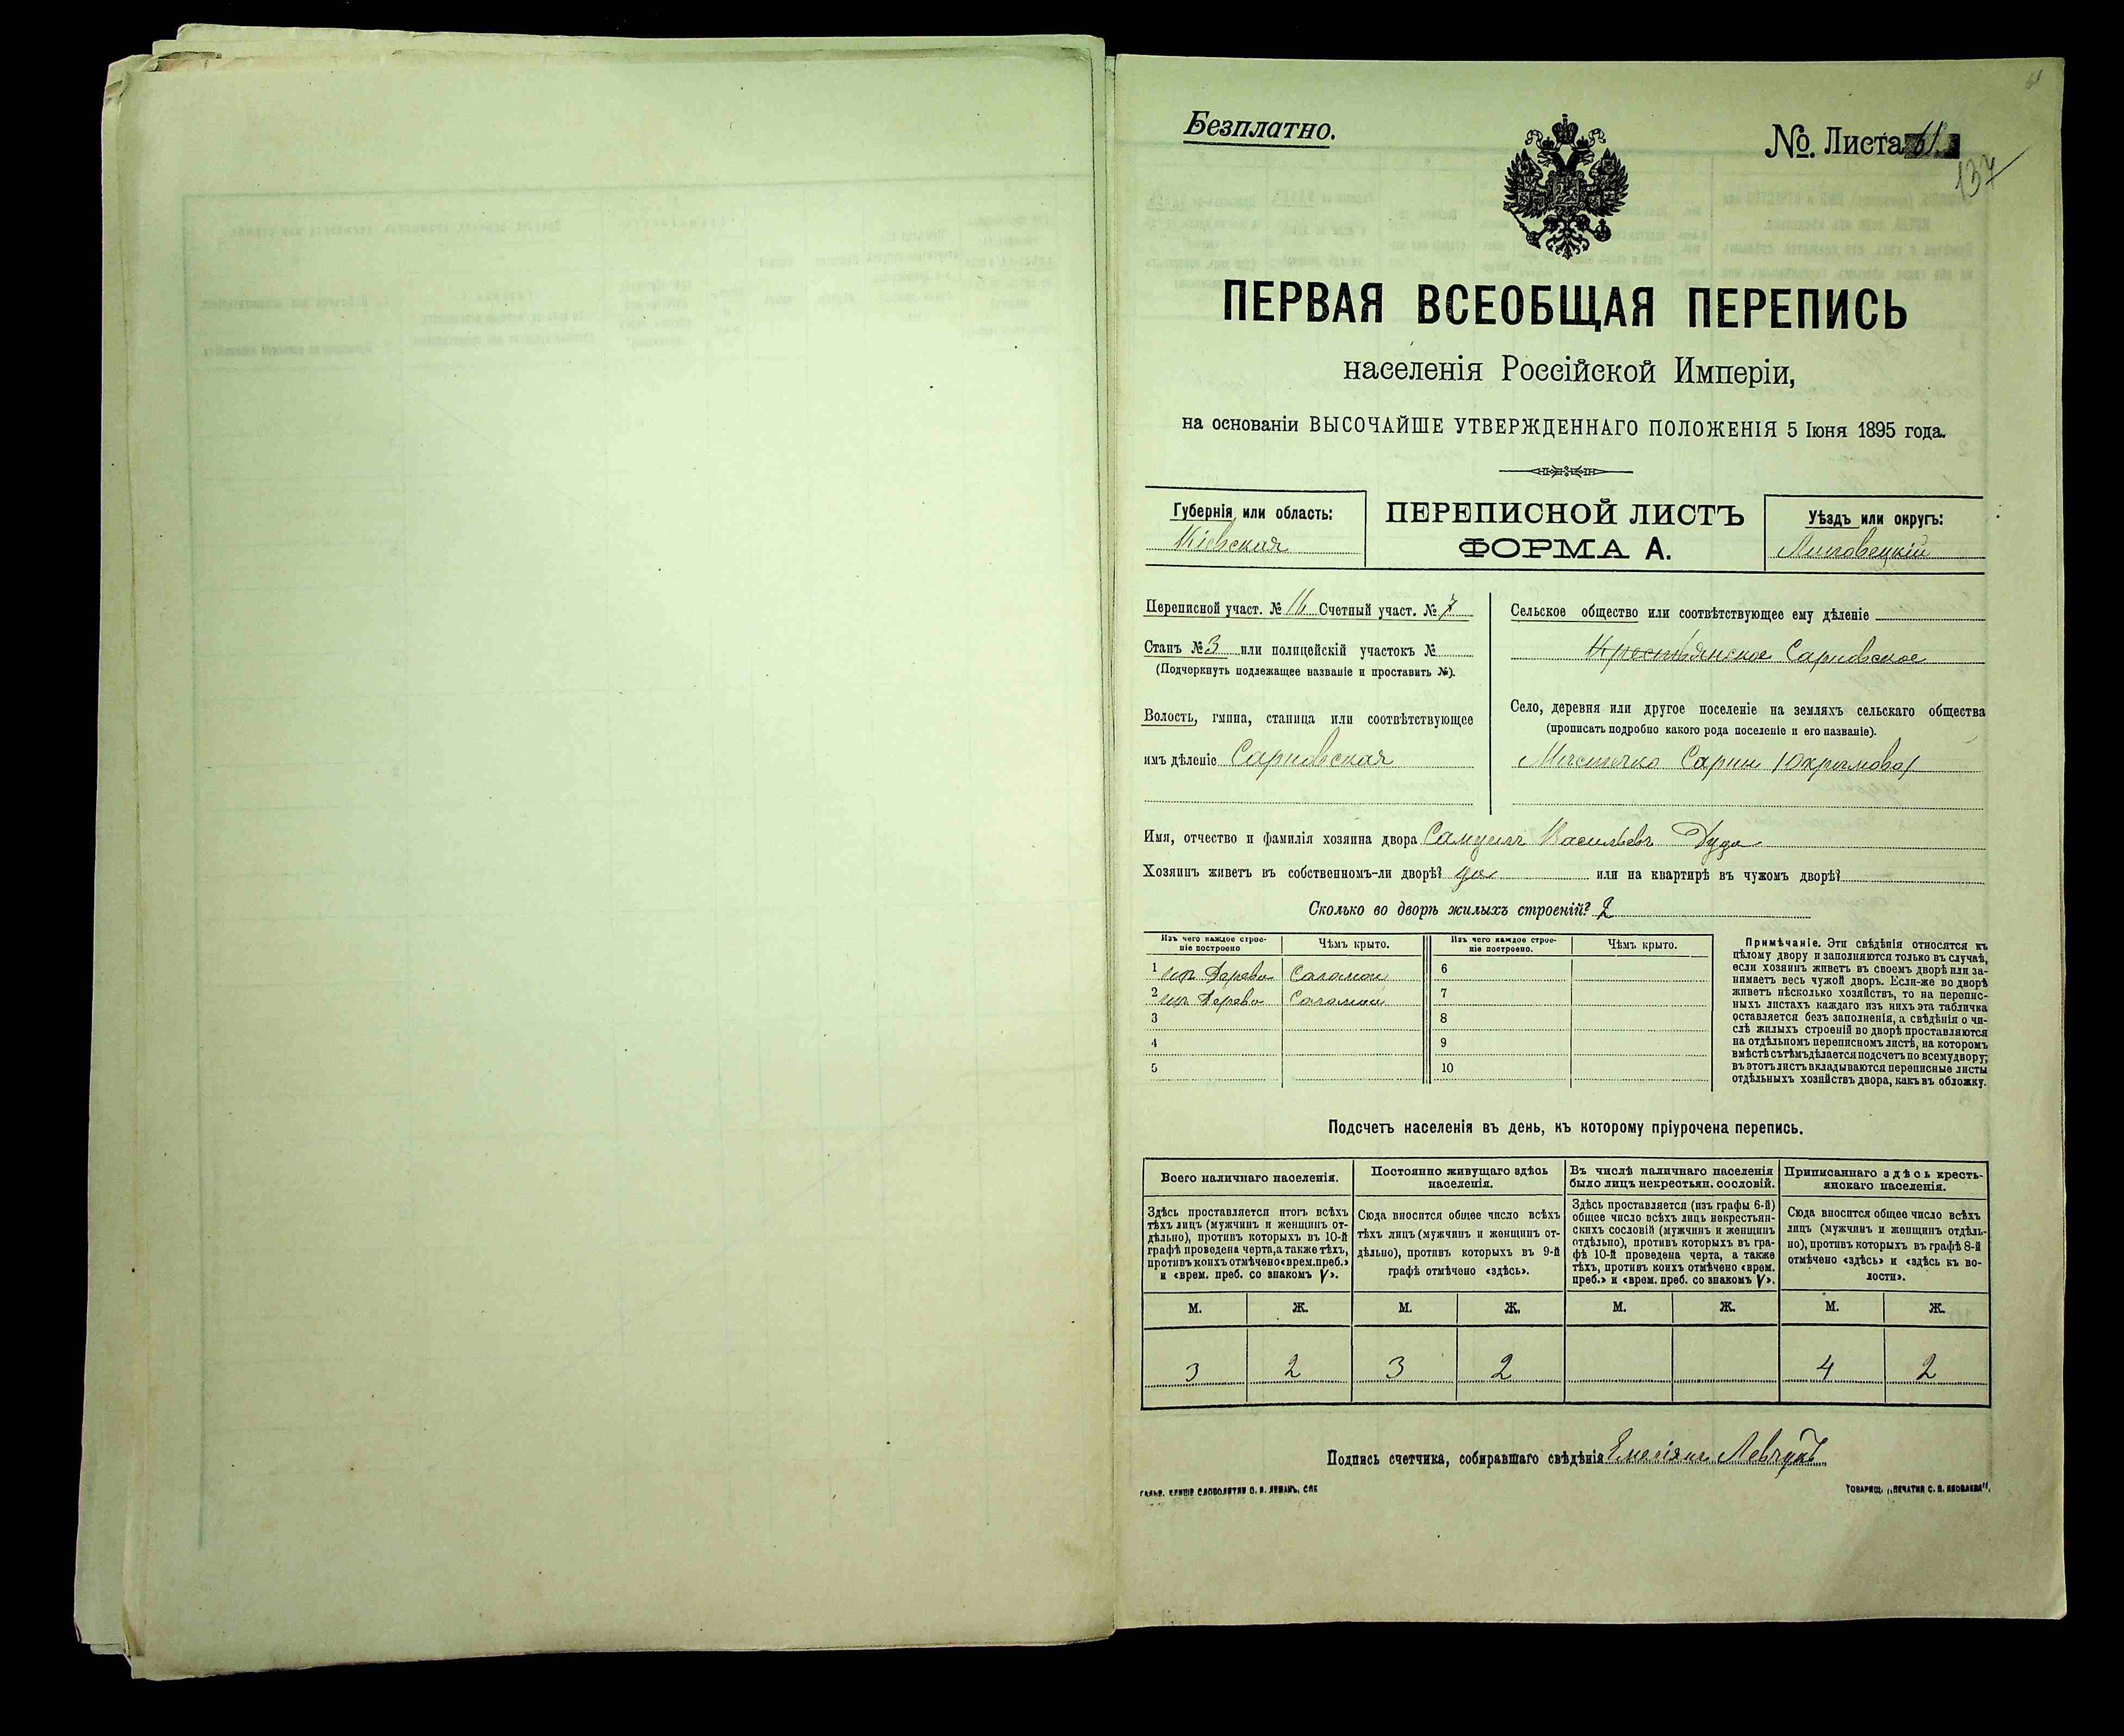 Безплатно.
№. Листа 61
137
ПЕРВАЯ ВСЕОБЩАЯ ПЕРЕПИСЬ
населенія Россійской Имперіи,
на основаніи ВЫСОЧАЙШЕ УТВЕРЖДЕННАГО ПОЛОЖЕНІЯ 5 Іюня 1895 года.
Губернія или область:
Кіевская
ПЕРЕПИСНОЙ ЛИСТЪ
ФОРМА А.
Уѣздъ или округъ:
Липовецкій
Переписной участ. № 11 Счетный участ. № 7
Станъ № 3 или полицейскій участокъ №
(Подчеркнуть подлежащее названіе и проставить №).
Волость, гмина, станица или соотвѣтствующее
имъ дѣленіе Сарновская
Сельское общество или соотвѣтствующее ему дѣленіе
Крестьянское Сарновское
Село, деревня или другое поселеніе на земляхъ сельскаго общества
(прописать подробно какого рода поселеніе и его названіе).
Мѣстечко Сарни
Имя, отчество и фамилія хозяина двора Самуилъ Васильевъ Дуда
Хозяинъ живетъ въ собственномъ-ли дворѣ? да или на квартирѣ въ чужомъ дворѣ?
Сколько во дворѣ жилыхъ строеній? 2
Изъ чего каждое строе-
ніе построено
Чѣмъ крыто.
Изъ чего каждое строе-
ніе построено.
Чѣмъ крыто.
1 изъ Дерева Соломои 6
2 изъ Дерева Соломои 7
3 8
4 9
5 10
Примѣчаніе. Эти свѣдѣнія относятся къ
цѣлому двору и заполняются только въ случаѣ,
если хозяинъ живетъ въ своемъ дворѣ или за-
нимаетъ весь чужой дворъ. Если-же во дворѣ
живетъ нѣсколько хозяйствъ, то на перепис-
ныхъ листахъ каждаго изъ нихъ эта табличка
оставляется безъ заполненія, а свѣдѣнія о чи-
слѣ жилыхъ строеній во дворѣ проставляются
на отдѣльномъ переписномъ листѣ, на которомъ
вмѣстѣ сътѣмъ дѣлается подсчетъ по всему двору;
въ этотъ листъ вкладываются переписные листы
отдѣльныхъ хозяйствъ двора, какъ въ обложку.
Подсчетъ населенія въ день, къ которому пріурочена перепись.
Всего наличнаго населенія.
Здѣсь проставляется итогъ всѣхъ
тѣхъ лицъ (мужчинъ и женщинъ от-
дѣльно), противъ которыхъ въ 10-й
графѣ проведена черта, а также тѣхъ,
противъ коихъ отмѣчено «врем. преб.»
и «врем. преб. со знакомъ V».
Постоянно живущаго здѣсь
населенія.
Сюда вносится общее число всѣхъ
тѣхъ лицъ (мужчинъ и женщинъ от-
дѣльно), противъ которыхъ въ 9-й
графѣ отмѣчено «здѣсь».
Въ числѣ наличнаго населенія
было лицъ некрестьян. сословій.
Здѣсь проставляется (изъ графы 6-й)
общее число всѣхъ лицъ некрестьян-
скихъ сословій (мужчинъ и женщинъ
отдѣльно), противъ которыхъ въ гра-
фѣ 10-й проведена черта, а также
тѣхъ, противъ коихъ отмѣчено «врем.
преб.» и «врем. преб. со знакомъ V».
Приписаннаго здѣсь кресть-
янскаго населенія.
Сюда вносится общее число всѣхъ
лицъ (мужчинъ и женщинъ отдѣль-
но), противъ которыхъ въ графѣ 8-й
отмѣчено «здѣсь» и «здѣсь къ во-
лости».
М. Ж. М. Ж. М. Ж. М. Ж.
3 2 3 2 4 2
Подпись счетчика, собиравшаго свѣдѣнія Емеліянъ Левчукъ
ГАЛЬВ. КЛИШЕ СЛОВОЛИТНИ О. И. ЛЕМАНЪ, СПБ
ТОВАРИЩ. „ПЕЧАТНЯ С. П. ЯКОВЛЕВА“.